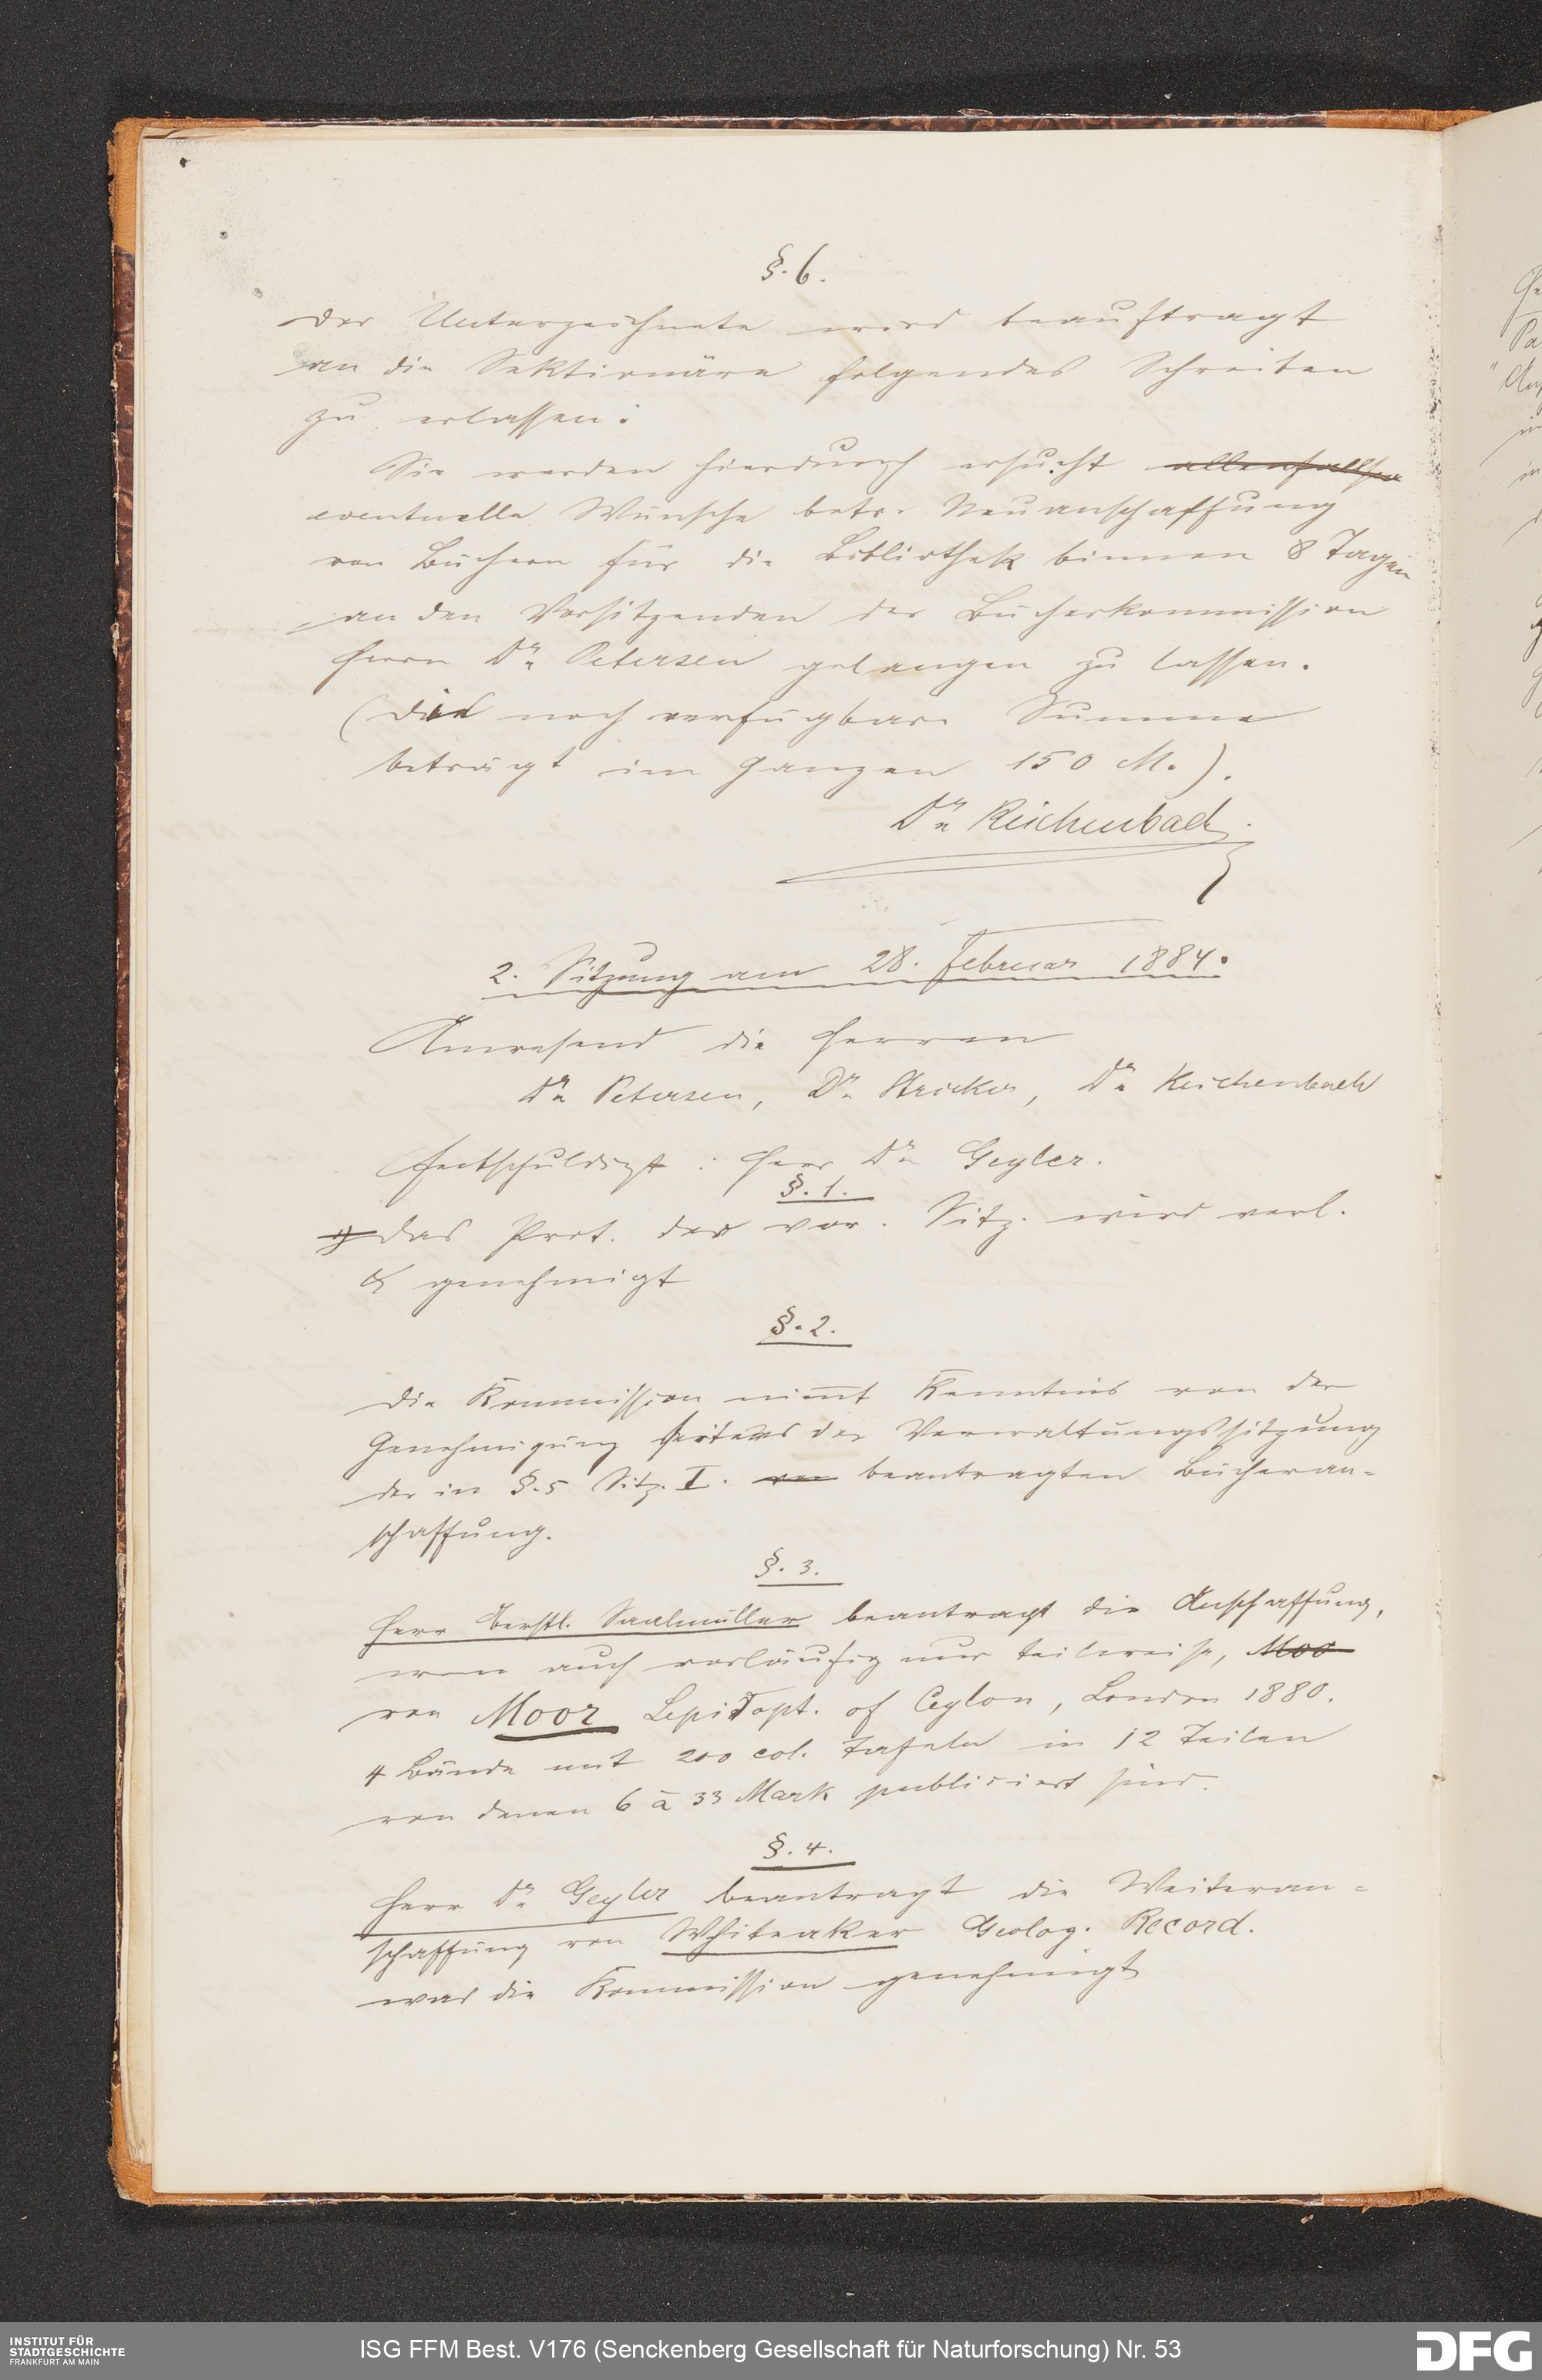 §. 6.
Der Unterzeichnete wird beauftragt
an die Sektionäre folgendes Schreiben
zu erlassen:
Sie werden hierdurch ersucht allenfallsige
eventuelle Wünsche betr. Neuanschaffung
von Büchern für die Bibliothek binnen 8 Tagen
an den Vorsitzenden der Bücherkommission
Herrn Dr. Petersen gelangen zu lassen.
(Die noch verfügbare Summe
beträgt im Ganzen 150 M.).
Dr. Reichenbach.
2. Sitzung am 28. Februar 1884.
Anwesend die Herren
Dr. Petersen, Dr. Stricker, Dr. Reichenbach
Entschuldigt: Herr Dr. Geyler.
§. 1.
Das Prot. der vor. Sitz. wird verl.
& genehmigt
§. 2.
Die Kommission nimt Kenntnis von der
Genehmigung seitens der Verwaltungssitzung
der in §. 5 Sitz. I. von beantragten Bücheran-
schaffung.
§. 3.
Herr Oberstl. Saalmüller beantragt die Anschaffung,
wenn auch vorläufig nur teilweise, Moo
von Moor Lepidopt. of Ceylon, London 1880.
4 Bände mit 200 col. Tafeln in 12 Teilen
von denen 6 à 33 Mark publiciert sind.
§. 4.
Herr Dr. Geyler beantragt die Weiteran-
schaffung von Whiteaker Geolog. Record.
was die Kommission genehmigt
INSTITUT FÜR
STADTGESCHICHTE
FRANKFURT AM MAIN
ISG FFM Best. V176 (Senckenberg Gesellschaft für Naturforschung) Nr. 53
DFG